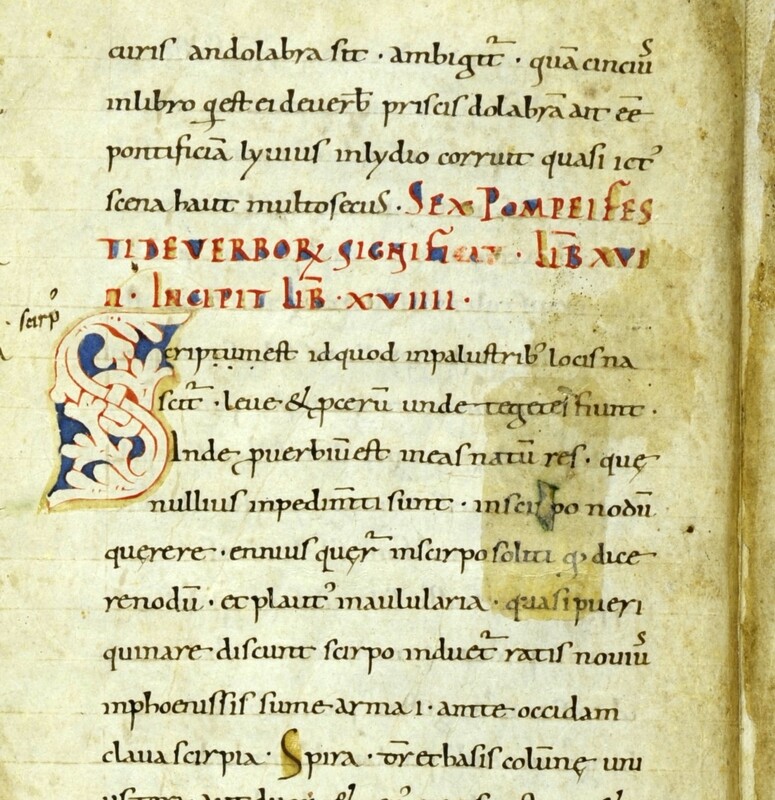 curis andolabra sit · ambigit᷑ · quā cinciū
inlibro q̄ est ei deuerb̄ priscis dolabrā ait eē
pontificiā lyuius inlydio corruit quasi ict᾽
scena haut multosecus · SEX POMPEI FES
TI DE VERBORꝜ SIGNIFICAT · LIB̄ XVI
II · INCIPIT LIB̄ · XVIIII ·
scirp᾽
Scriptum est id quod inpalustrib᾽ locis na
scit᷑ · leue & ꝓcerū unde tegetes fiunt ·
Inde ꝓuerbiū est ineas natū res · quę
nullius inpedim̄ti sunt · inscirpo nodū
quęrere · ennius quęr᷑ inscirpo soliti q᾽ dice
re nodū · et plaut᾽ inaulularia · quasi pueri
qui nare discunt scirpo induet᷑ ratis nouiū
inphoenissis sume arma i · am te occidam
claua scirpia · Spira · dr̄ et basis colūnę uni